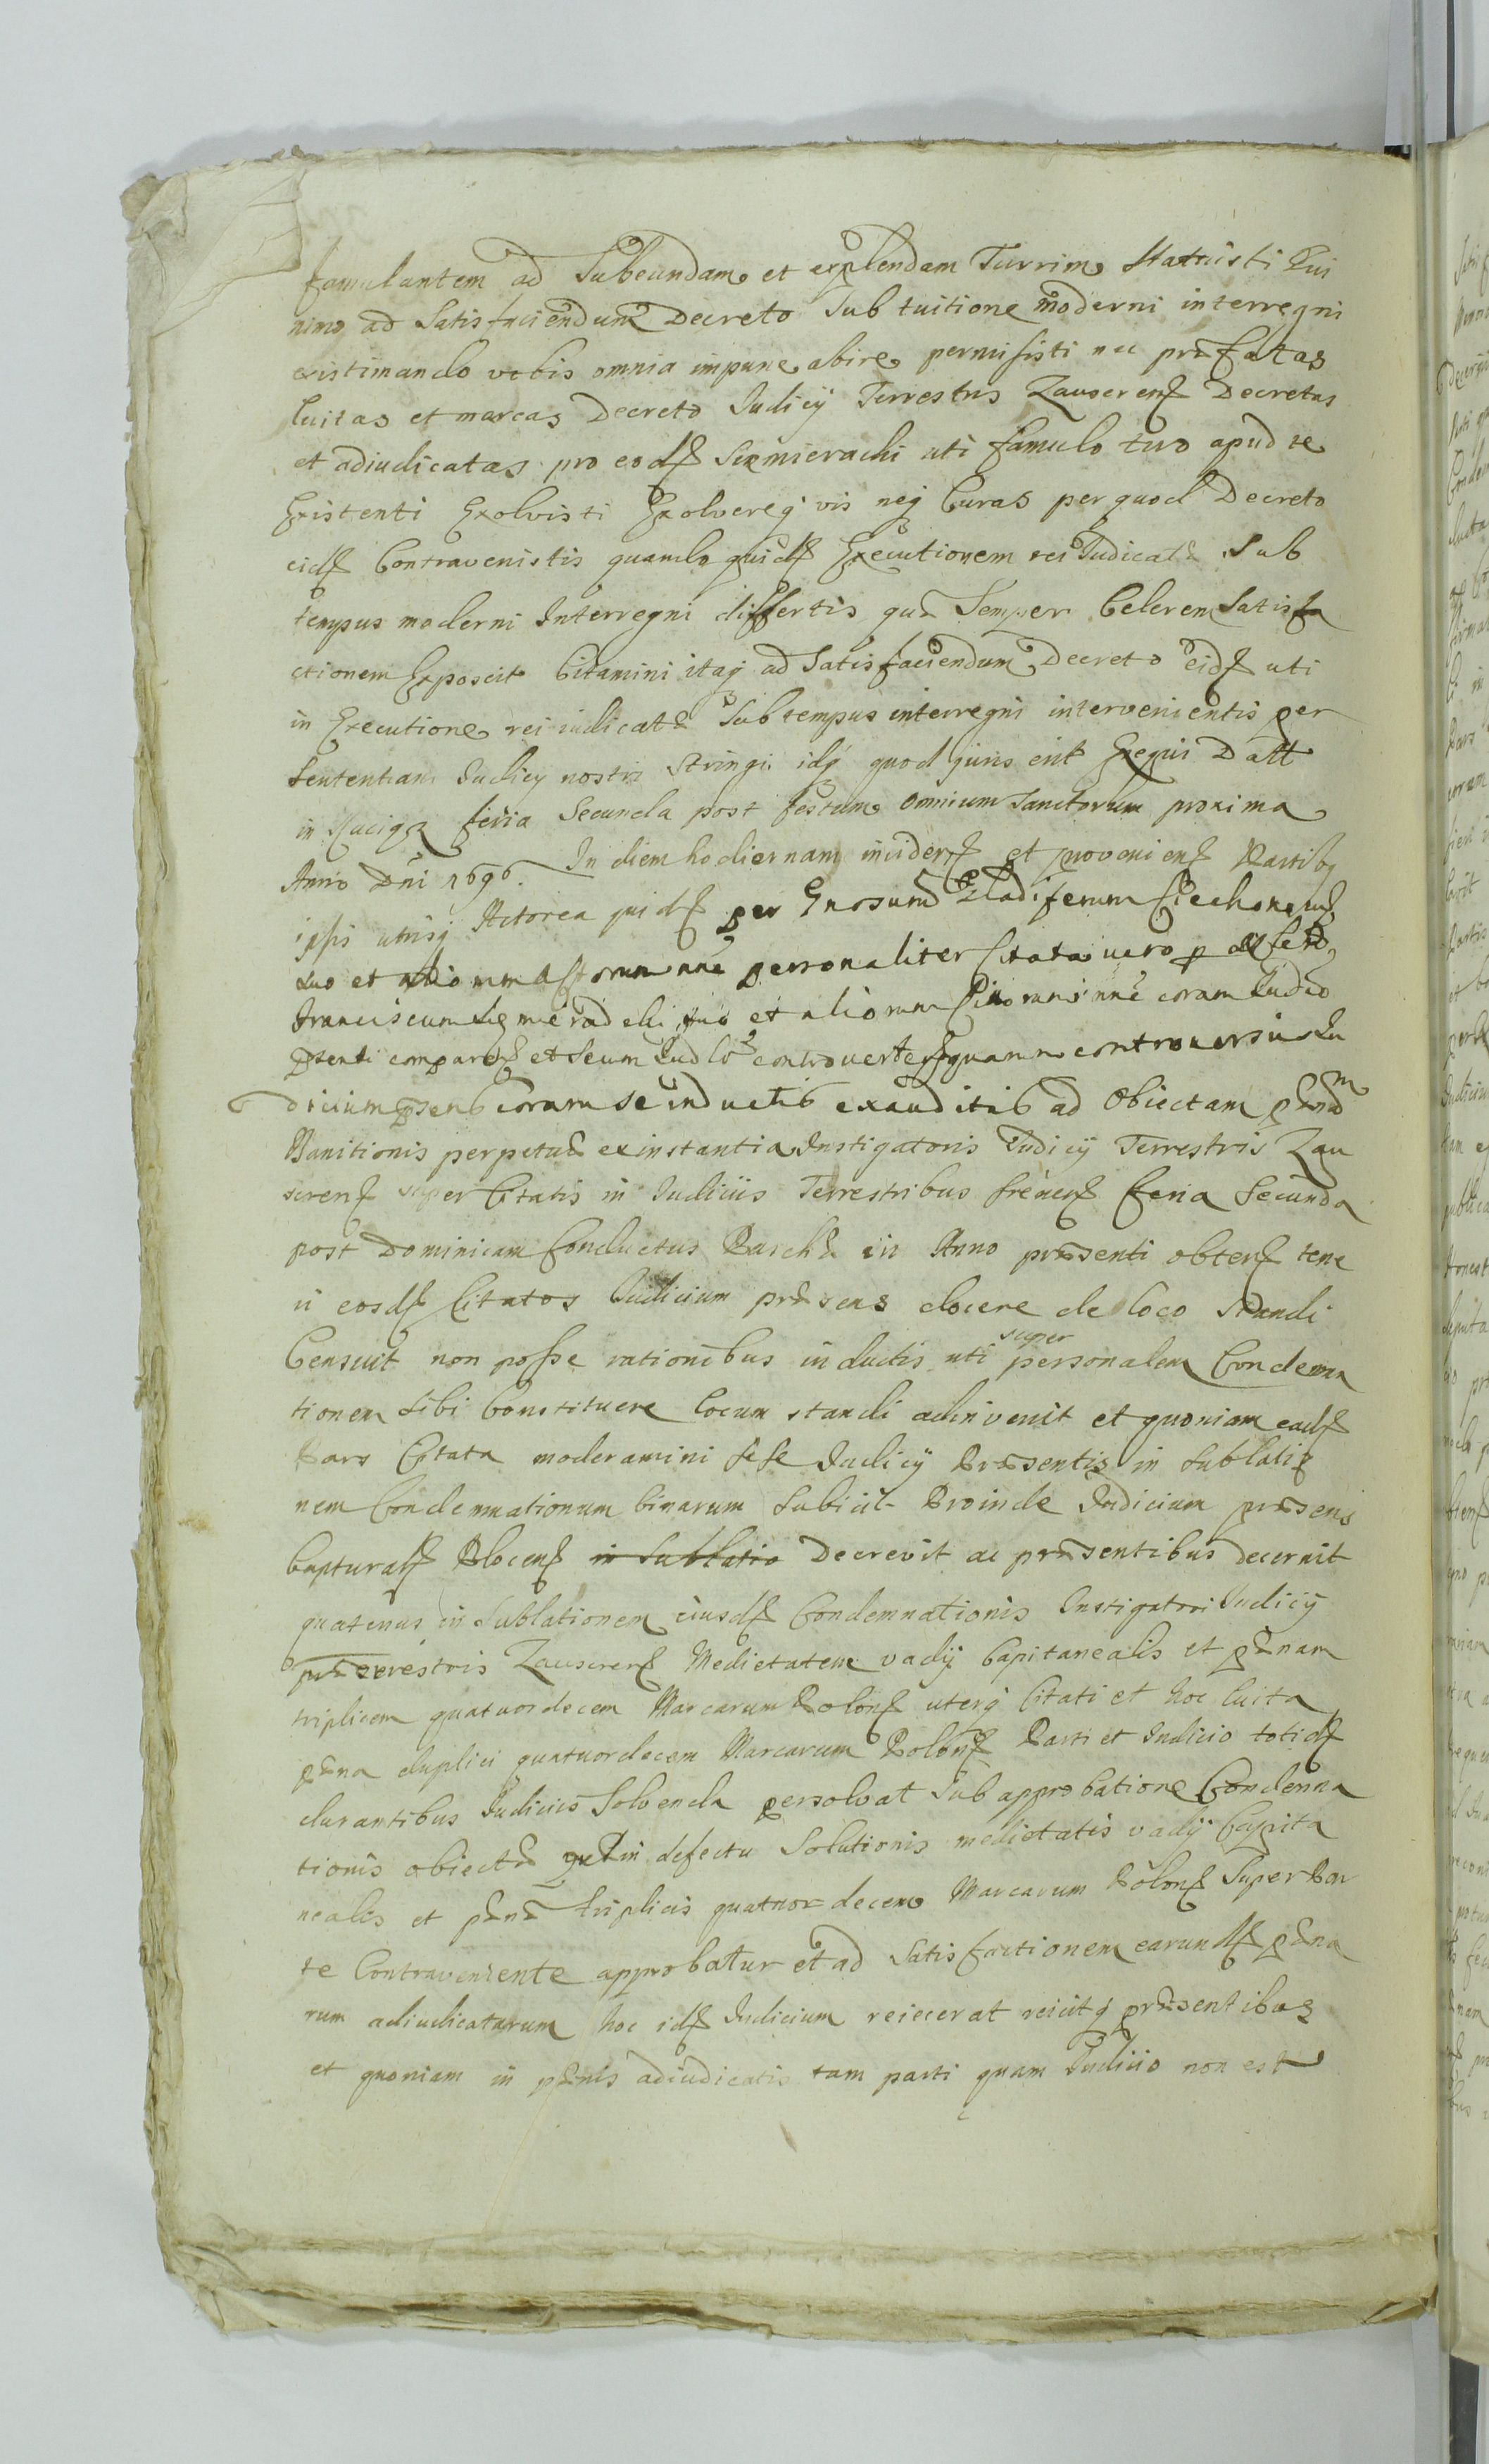 famulantem ad Subeundam et explendam Turrim Statuisti Qui
nimo ad Satisfaciendum Decreto Sub tuitione moderni interregni
existimando vobis omnia impune abire permisisti nec præfatas
luitas et marcas Decreto Judicij Terrestris Zauscrens Decretas
et adiudicatas pro eodem famulo tuo apud te
Existenti Exolvisti Exolvereq vis neq Curas per quod Decreto
eidem Contravenistis quando quidem Executionem rei Judicatæ Sub
tempus moderni Interregni differtis quæ Semper Celerem Satisfa
ctionem Exposcit Citamini itaq ad Satisfaciendum Decreto eidem uti
in Executione rei iudicatæ Sub tempus interregni intervenientis per
Sententiam Judicij nostri Stringi idq quod juris erit Exequi Datt
in feria Secunda post festum Omnium Sanctorum proxima
Anno Dni 1696. In diem hodiernam incidens et proveniens Partibq
ipsis utrisq Actorea quidem per Gnosum Gladiferum Ciechonovien
suo et aliorum Actorum nne personaliter Citata vero p
Franciscum suo et aliorum Citatorum nne coram Judicio
pnti comparens et secum Jud controverten quarum controversias Ju
dicium psens coram se inductis exauditis ad Obiectam pænam
Banitionis perpetuæ ex instantia Instigatoris Judicij Terrestris Zau
screns super Citatis in Judiciis Terrestribus feria Secunda
post Dominicam Conductus Paschæ in Anno præsenti obtens tene
ri eosdem Citatos Judicium præsens docere de loco Standi
Censuit non posse rationibus inductis uti super personalem Condemna
tionem Sibi Constituere locum standi adinvenit et quoniam eadem
Pars Citata moderamini sese Judicij Præsentis in Sublatio
nem Condemnationum binarum Subicit Proinde Judicium præsens
Capturale Plocens in Sublatio Decrevit ac præsentibus decernit
quatenus in Sublationem eiusdem Condemnationis Instigatori Judicij
Terrestris Zauscrens Medietatem vadij Capitanealis et pænam
triplicem quatuordecem Marcarum Polons uterq Citati et hoc luita
pæna duplici quatuordecem Marcarum Polons Parti et Judicio totidem
durantibus Judiciis Solvenda persolvat Sub approbatione Condemna
tionis obiectæ in defectu Solutionis medietatis vadij Capita
nealis et pænæ triplicis quatuor decem Marcarum Polons Super Par
te Contraveniente approbatur et ad Satisfactionem earundem pæna
rum adiudicatarum hoc idem Judicium reiecerat reicitq præsentibus
et quoniam in pænis adiudicatis tam parti quam Judicio non est